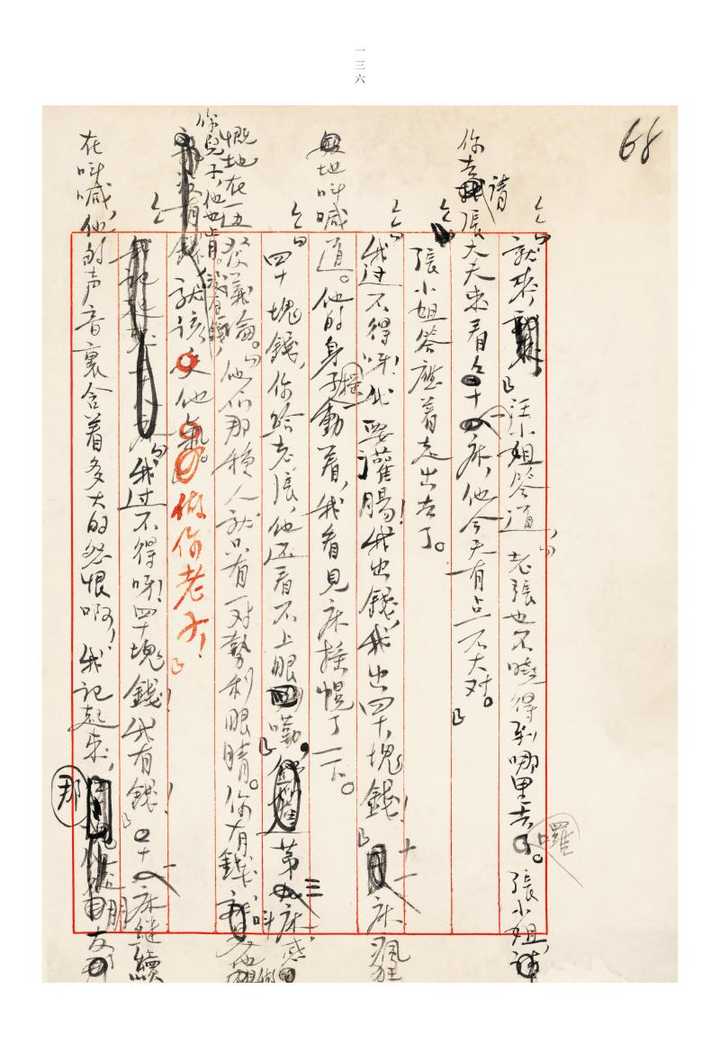 一三六
68
「就來，」汪小姐答道，「老張也不曉得到哪里去了囉。張小姐，請
你去請張大夫來看看十一床，他今天有点不大对。」
張小姐答應着走出去了。
「我过不得呀！我要灌腸！我出錢，我出四十塊錢！」十一床瘋狂
地叫喊道。他的身子搖動着，我看見床搖幌了一下。
「四十塊錢，你給老張，他还看不上眼嘞，」第三床感
慨地在一边發議論。「他们那種人就只有一对勢利眼睛。你有錢，
你兒子，他也上前。没有錢，就該受他氣。做你老子！」
「我过不得呀！四十塊錢！我有錢！」十一床继續
在叫喊，他的声音裏含着多大的怨恨啊，我記起來，那朋友